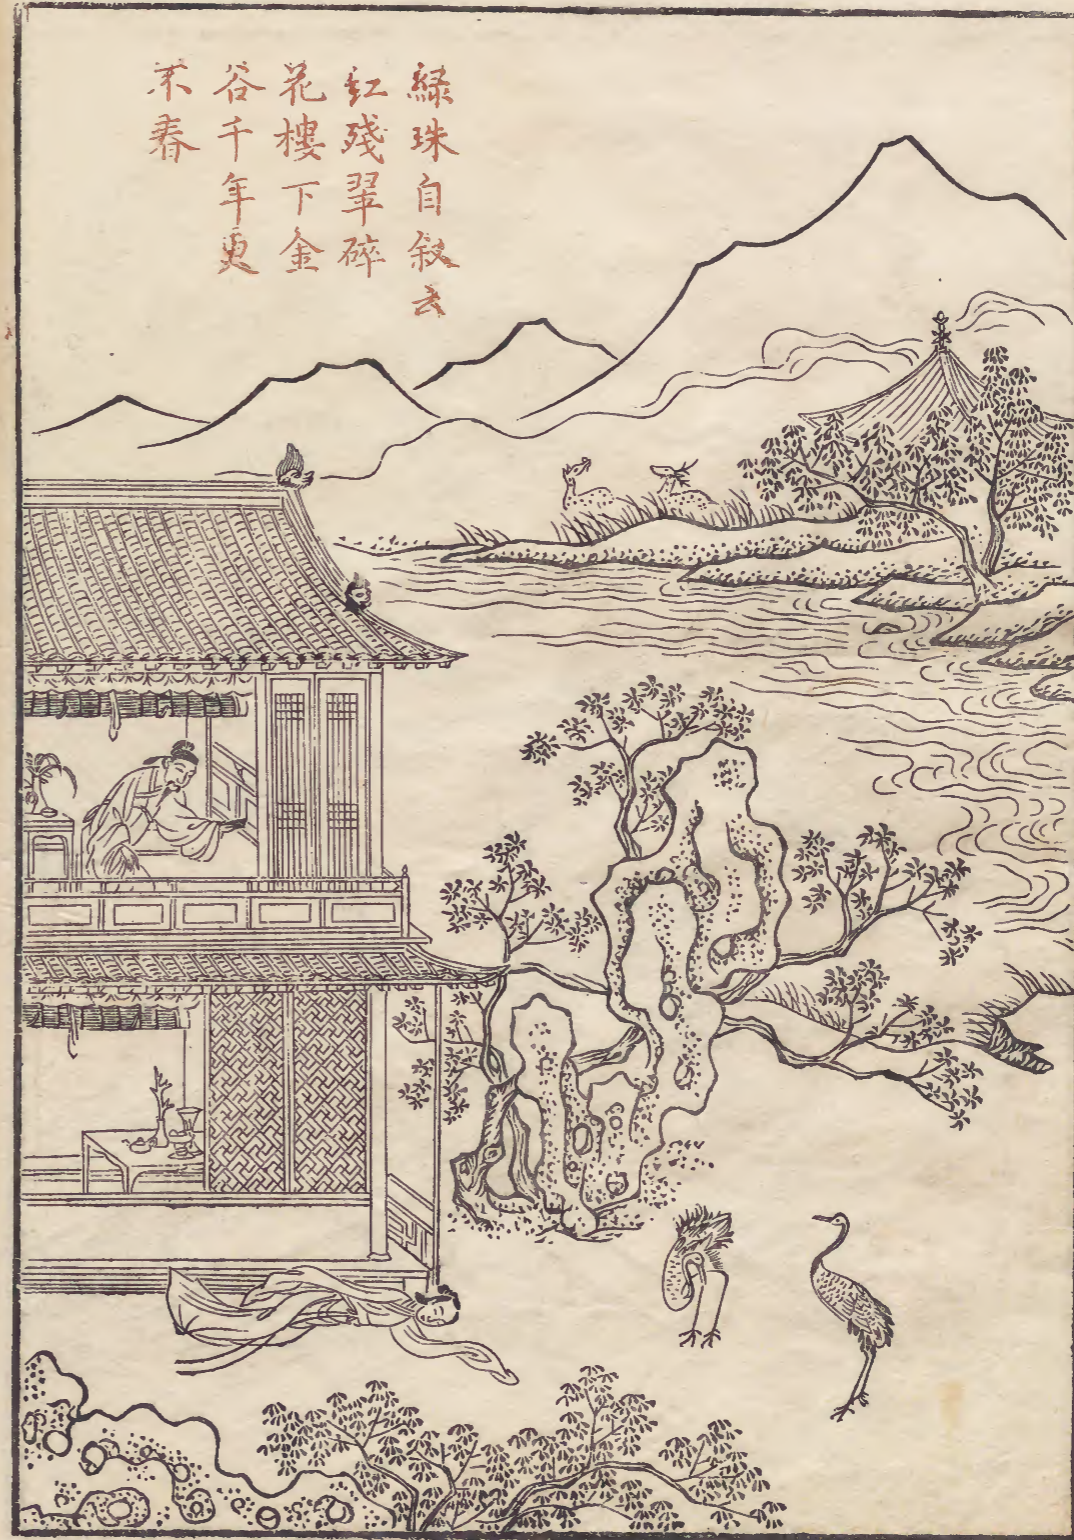 綠珠自叙云
紅殘翠碎
花樓下金
谷千年更
不春